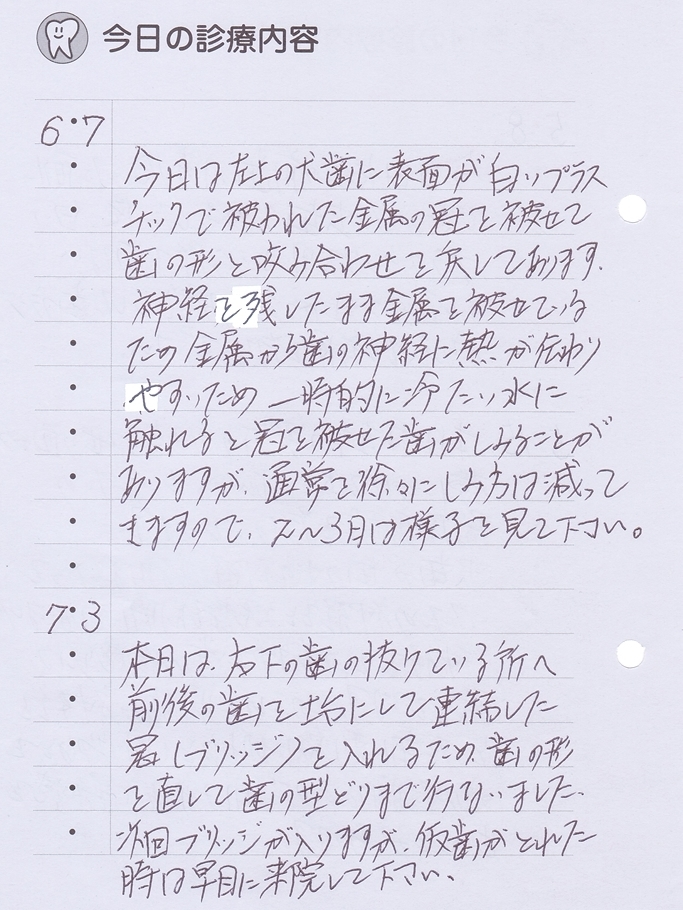 今日の診療内容
6・7
今日は左上の犬歯に表面が白いプラス
チックで被われた金属の冠を被せて
歯の形と咬み合わせを戻してあります。
神経を残したまま金属を被せている
ため金属から歯の神経に熱が伝わり
やすいため一時的に冷たい水に
触れると冠を被せた歯がしみることが
ありますが、通常は徐々にしみ方は減って
きますので、2〜3日は様子を見て下さい。
7・3
本日は、右下の歯の抜けている所へ
前後の歯を土台にして連結した
冠(ブリッジ)を入れるため、歯の形
を直して歯の型どりまで行ないました。
次回ブリッジが入りますが、仮歯がとれた
時は早目に来院して下さい。